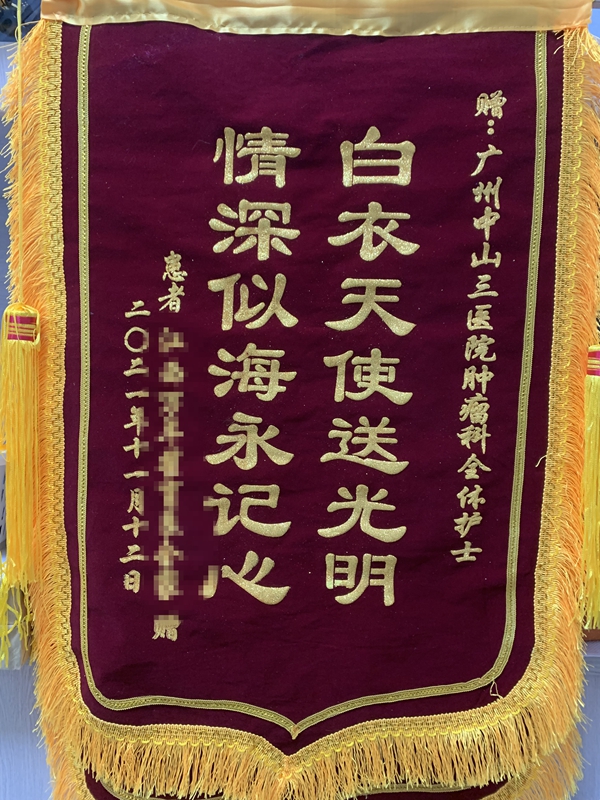 赠：广州中山三医院肿瘤科全体护士
白衣天使送光明
情深似海永记心
患者 赠
二〇二一年十一月十二日